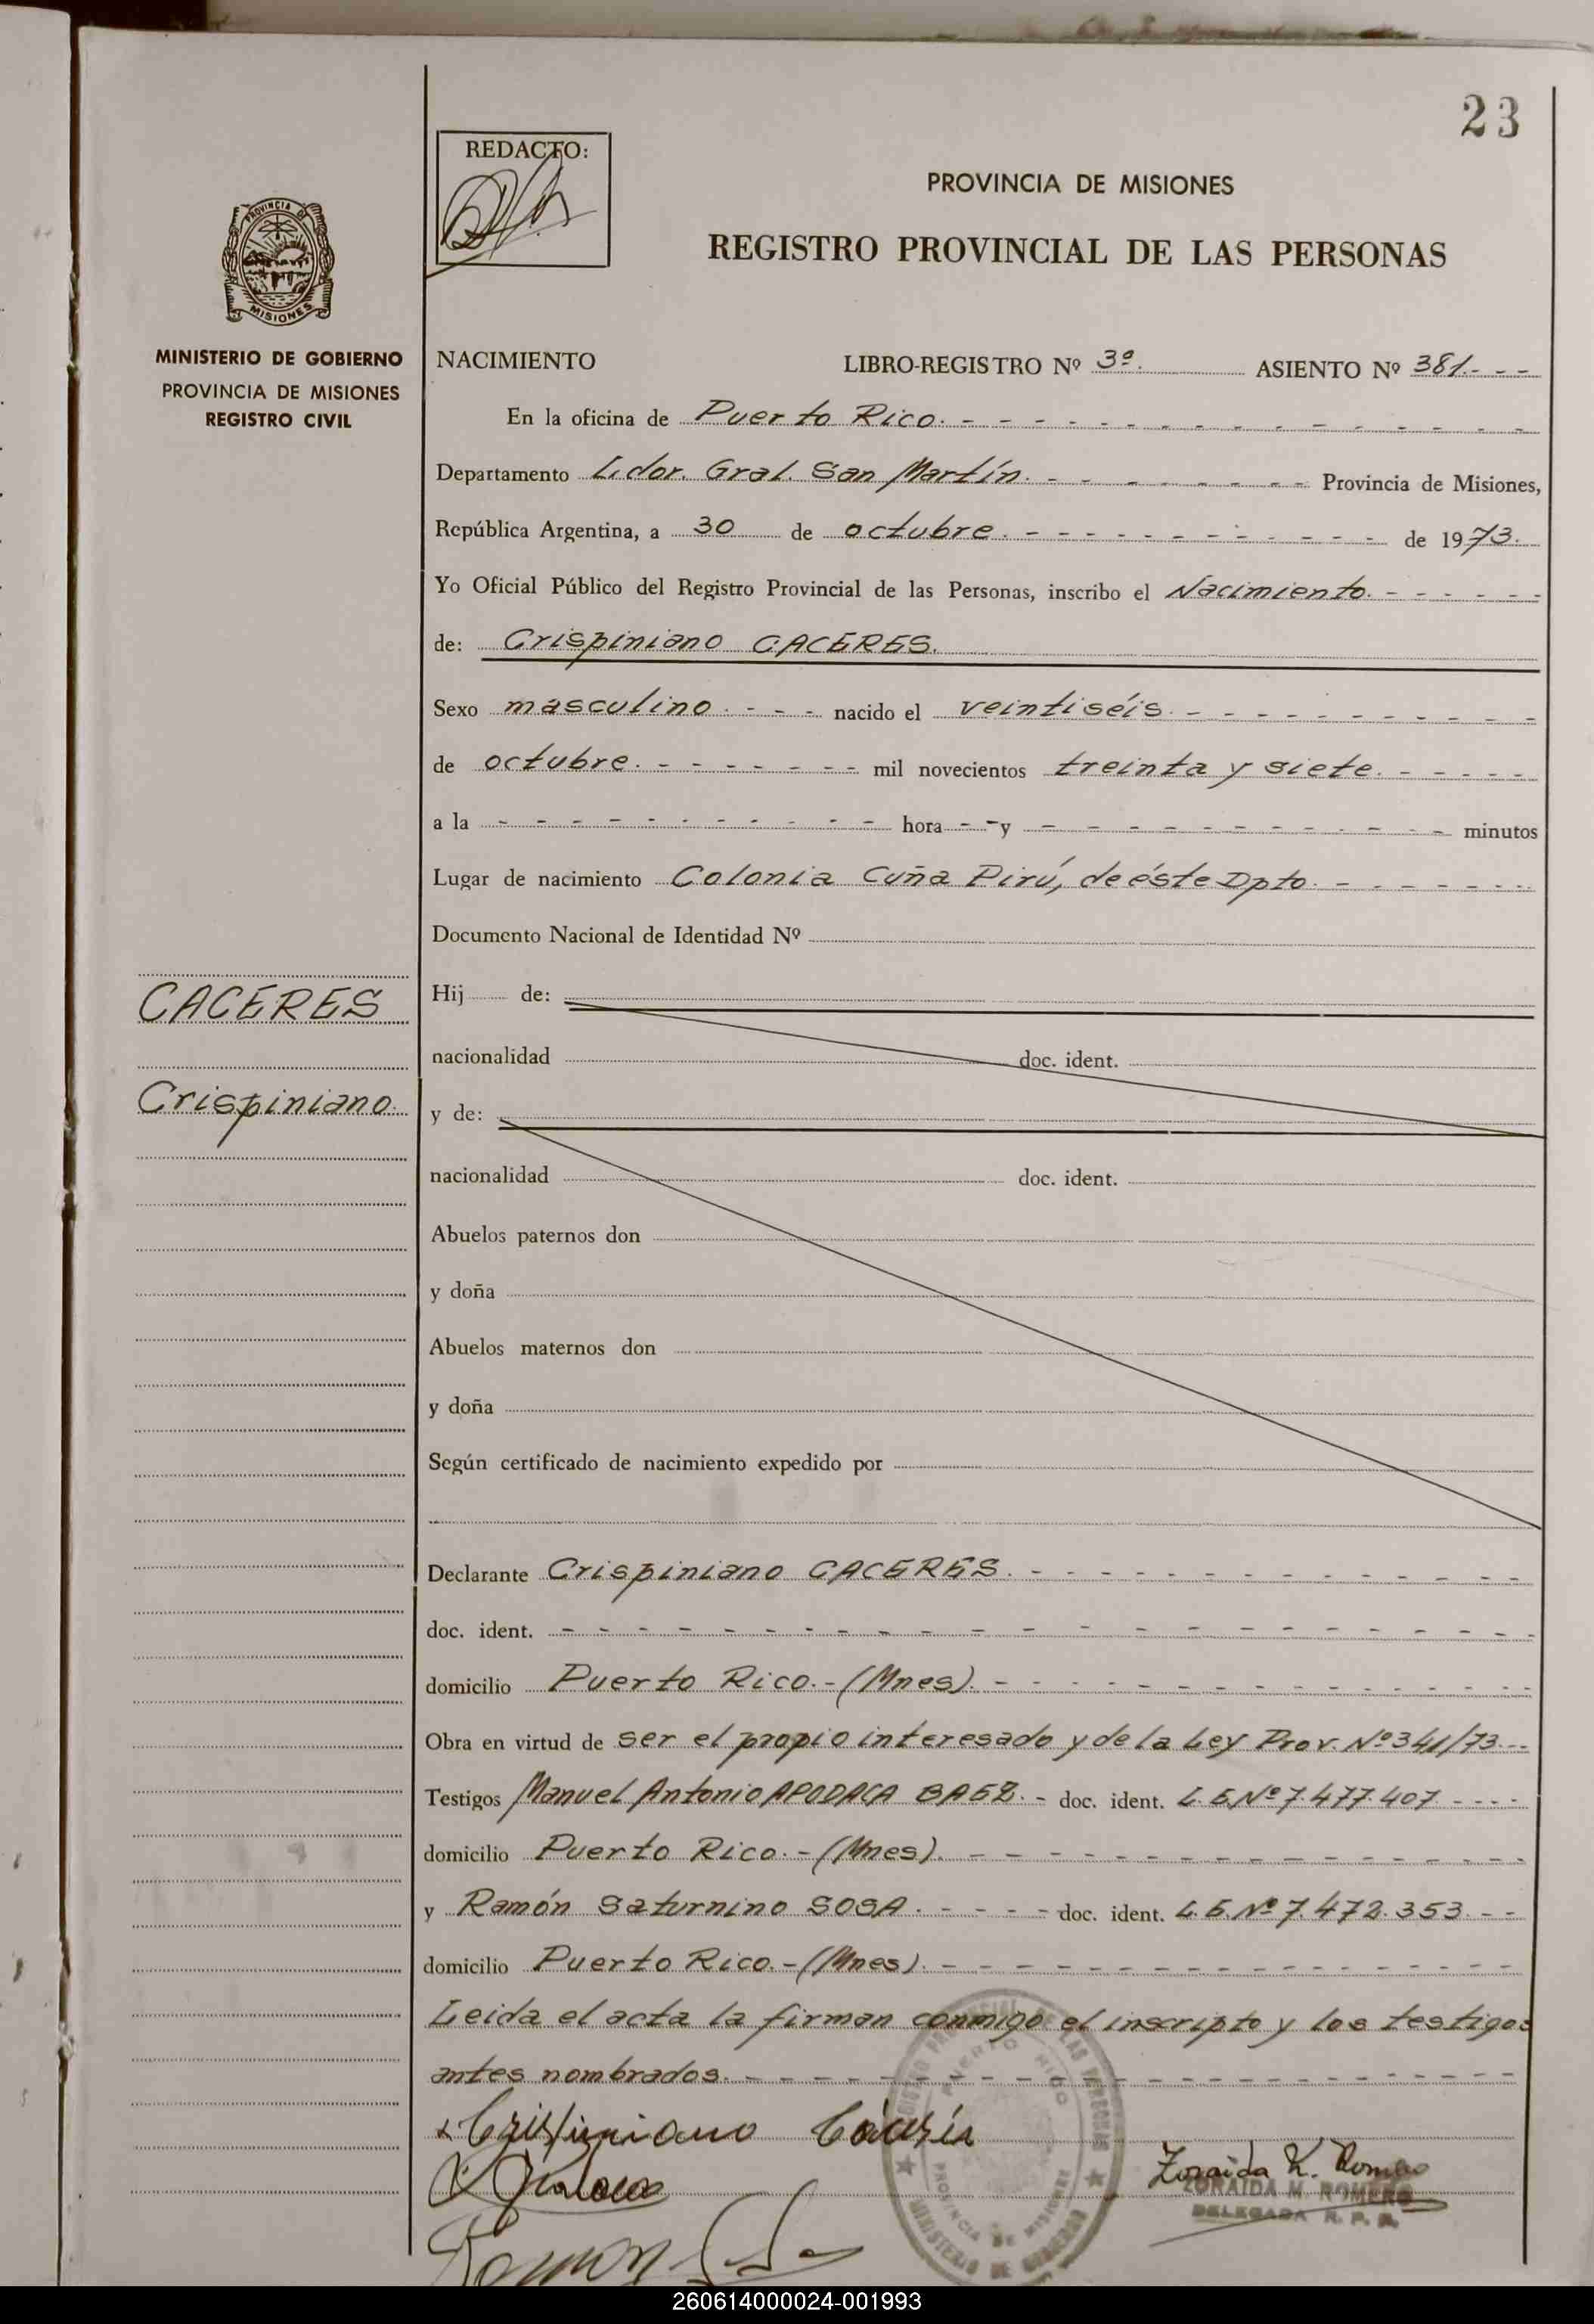 23
REDACTO:
PROVINCIA DE MISIONES
REGISTRO PROVINCIAL DE LAS PERSONAS
PROVINCIA DE
MISIONES
MINISTERIO DE GOBIERNO
PROVINCIA DE MISIONES
REGISTRO CIVIL
NACIMIENTO LIBRO-REGISTRO Nº 3º. ASIENTO Nº 381.- - -
En la oficina de Puerto Rico. - - - - - - - - - - - - - - - -
Departamento L.dor. Gral. San Martín. - - - - - - - - Provincia de Misiones,
República Argentina, a 30 de octubre. - - - - - - - - - - - - de 1973.
Yo Oficial Público del Registro Provincial de las Personas, inscribo el Nacimiento. - - - - - -
de: Crispiniano CACERES.
Sexo masculino. - - - nacido el veintiséis. - - - - - - - - - -
de octubre. - - - - - - - mil novecientos treinta y siete. - - - - -
a la - - - - - - - - - - - hora - - y - - - - - - - - - - - - - minutos
Lugar de nacimiento Colonia Cuña Pirú, de éste Dpto. - - - - - - -
Documento Nacional de Identidad Nº
CACERES
Hij de:
nacionalidad doc. ident.
Crispiniano.
y de:
nacionalidad doc. ident.
Abuelos paternos don
y doña
Abuelos maternos don
y doña
Según certificado de nacimiento expedido por
Declarante Crispiniano CACERES. - - - - - - - - - - - - -
doc. ident. - - - - - - - - - - - - - - - - - - -
domicilio Puerto Rico. - (Mnes). - - - - - - - - - - - - - -
Obra en virtud de ser el propio interesado y de la Ley Prov. Nº 341/73. - -
Testigos Manuel Antonio APODACA BAEZ. - doc. ident. L.E.Nº 7.477.407 - - - -
domicilio Puerto Rico. - (Mnes). - - - - - - - - - - - - - - -
y Ramón Saturnino SOSA. - - - - doc. ident. L.E.Nº 7.472.353. - -
domicilio Puerto Rico. - (Mnes). - - - - - - - - - - - - - - -
Leida el acta la firman conmigo el inscripto y los testigos
antes nombrados. - - - - - - - - - - - - - - - - - - - -
Crispiniano Cáceres
Zoraida K. Romero
ZORAIDA M. ROMERO
DELEGADA R. P. P.
PUERTO RICO
PROVINCIA DE MISIONES
MINISTERIO DE GOBIERNO
Ramón
260614000024-001993